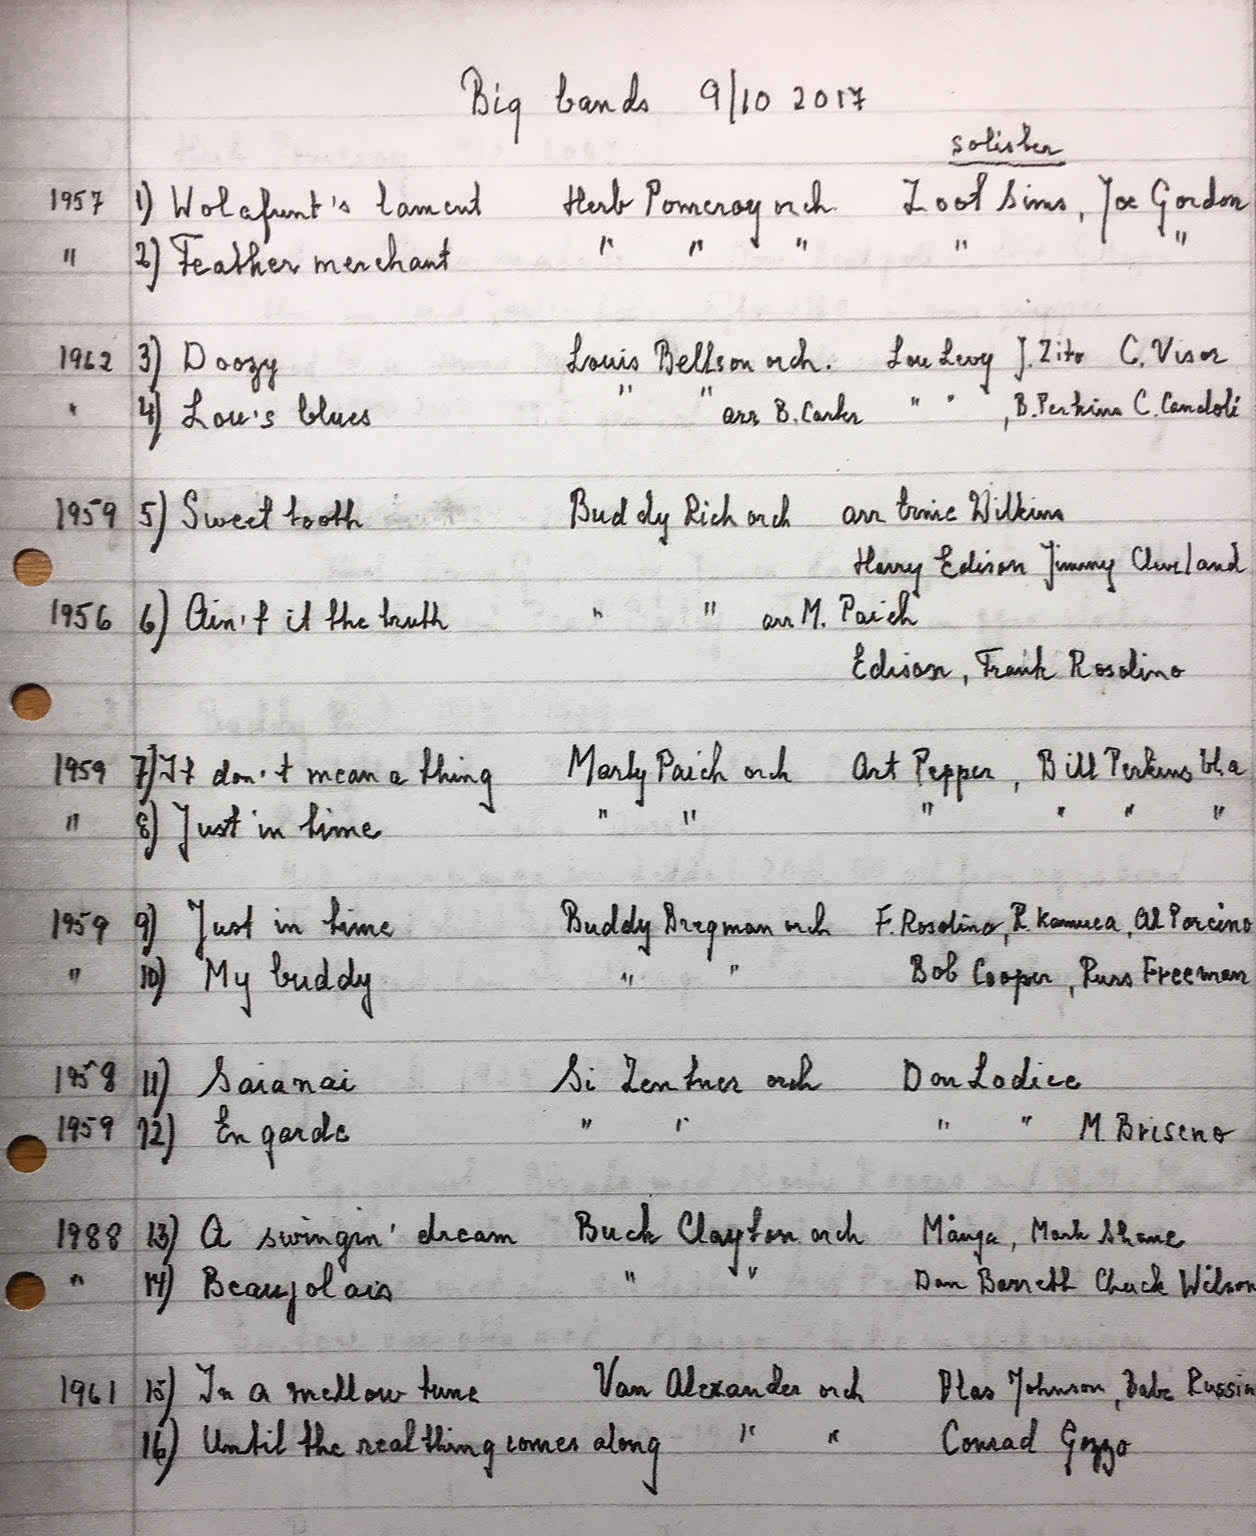 Big bands 9/10 2017
solister
1957 1) Wolafunt's lament Herb Pomeroy orch. Zoot Sims, Joe Gordon
" 2) Feather merchant " " " " "
1962 3) Doozy Louis Bellson orch. Lou Levy J. Zito C. Visor
" 4) Lou's blues " " arr B. Carter " " , B. Perkins C. Candoli
1959 5) Sweet tooth Buddy Rich orch arr Ernie Wilkins
Harry Edison Jimmy Cleveland
1956 6) Ain't it the truth " " arr M. Paich
Edison, Frank Rosolino
1959 7) It don't mean a thing Marty Paich orch Art Pepper, Bill Perkins bl a
" 8) Just in time " " " " " "
1959 9) Just in time Buddy Bregman orch F. Rosolino, R. Kamuca, Al Porcino
" 10) My buddy " " Bob Cooper, Russ Freeman
1958 11) Saianai Si Zentner orch Don Lodice
1959 12) En garde " " " " M. Briseno
1988 13) A swingin' dream Buck Clayton orch Många, Mark Shane
" 14) Beaujolais " " Dan Barrett Chuck Wilson
1961 15) In a mellow tune Van Alexander orch Plas Johnson, Babe Russin
16) Until the real thing comes along " " Conrad Gozzo